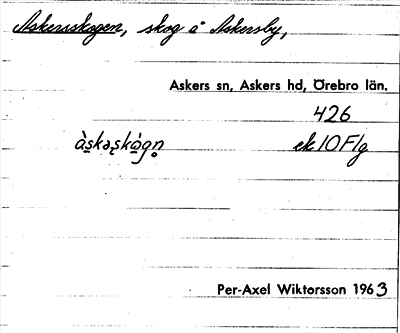 Askersskogen, skog å Askersby,
Askers sn, Askers hd, Örebro län.
426
àskəʂkògn̥ ek 10 F1g
Per-Axel Wiktorsson 1963